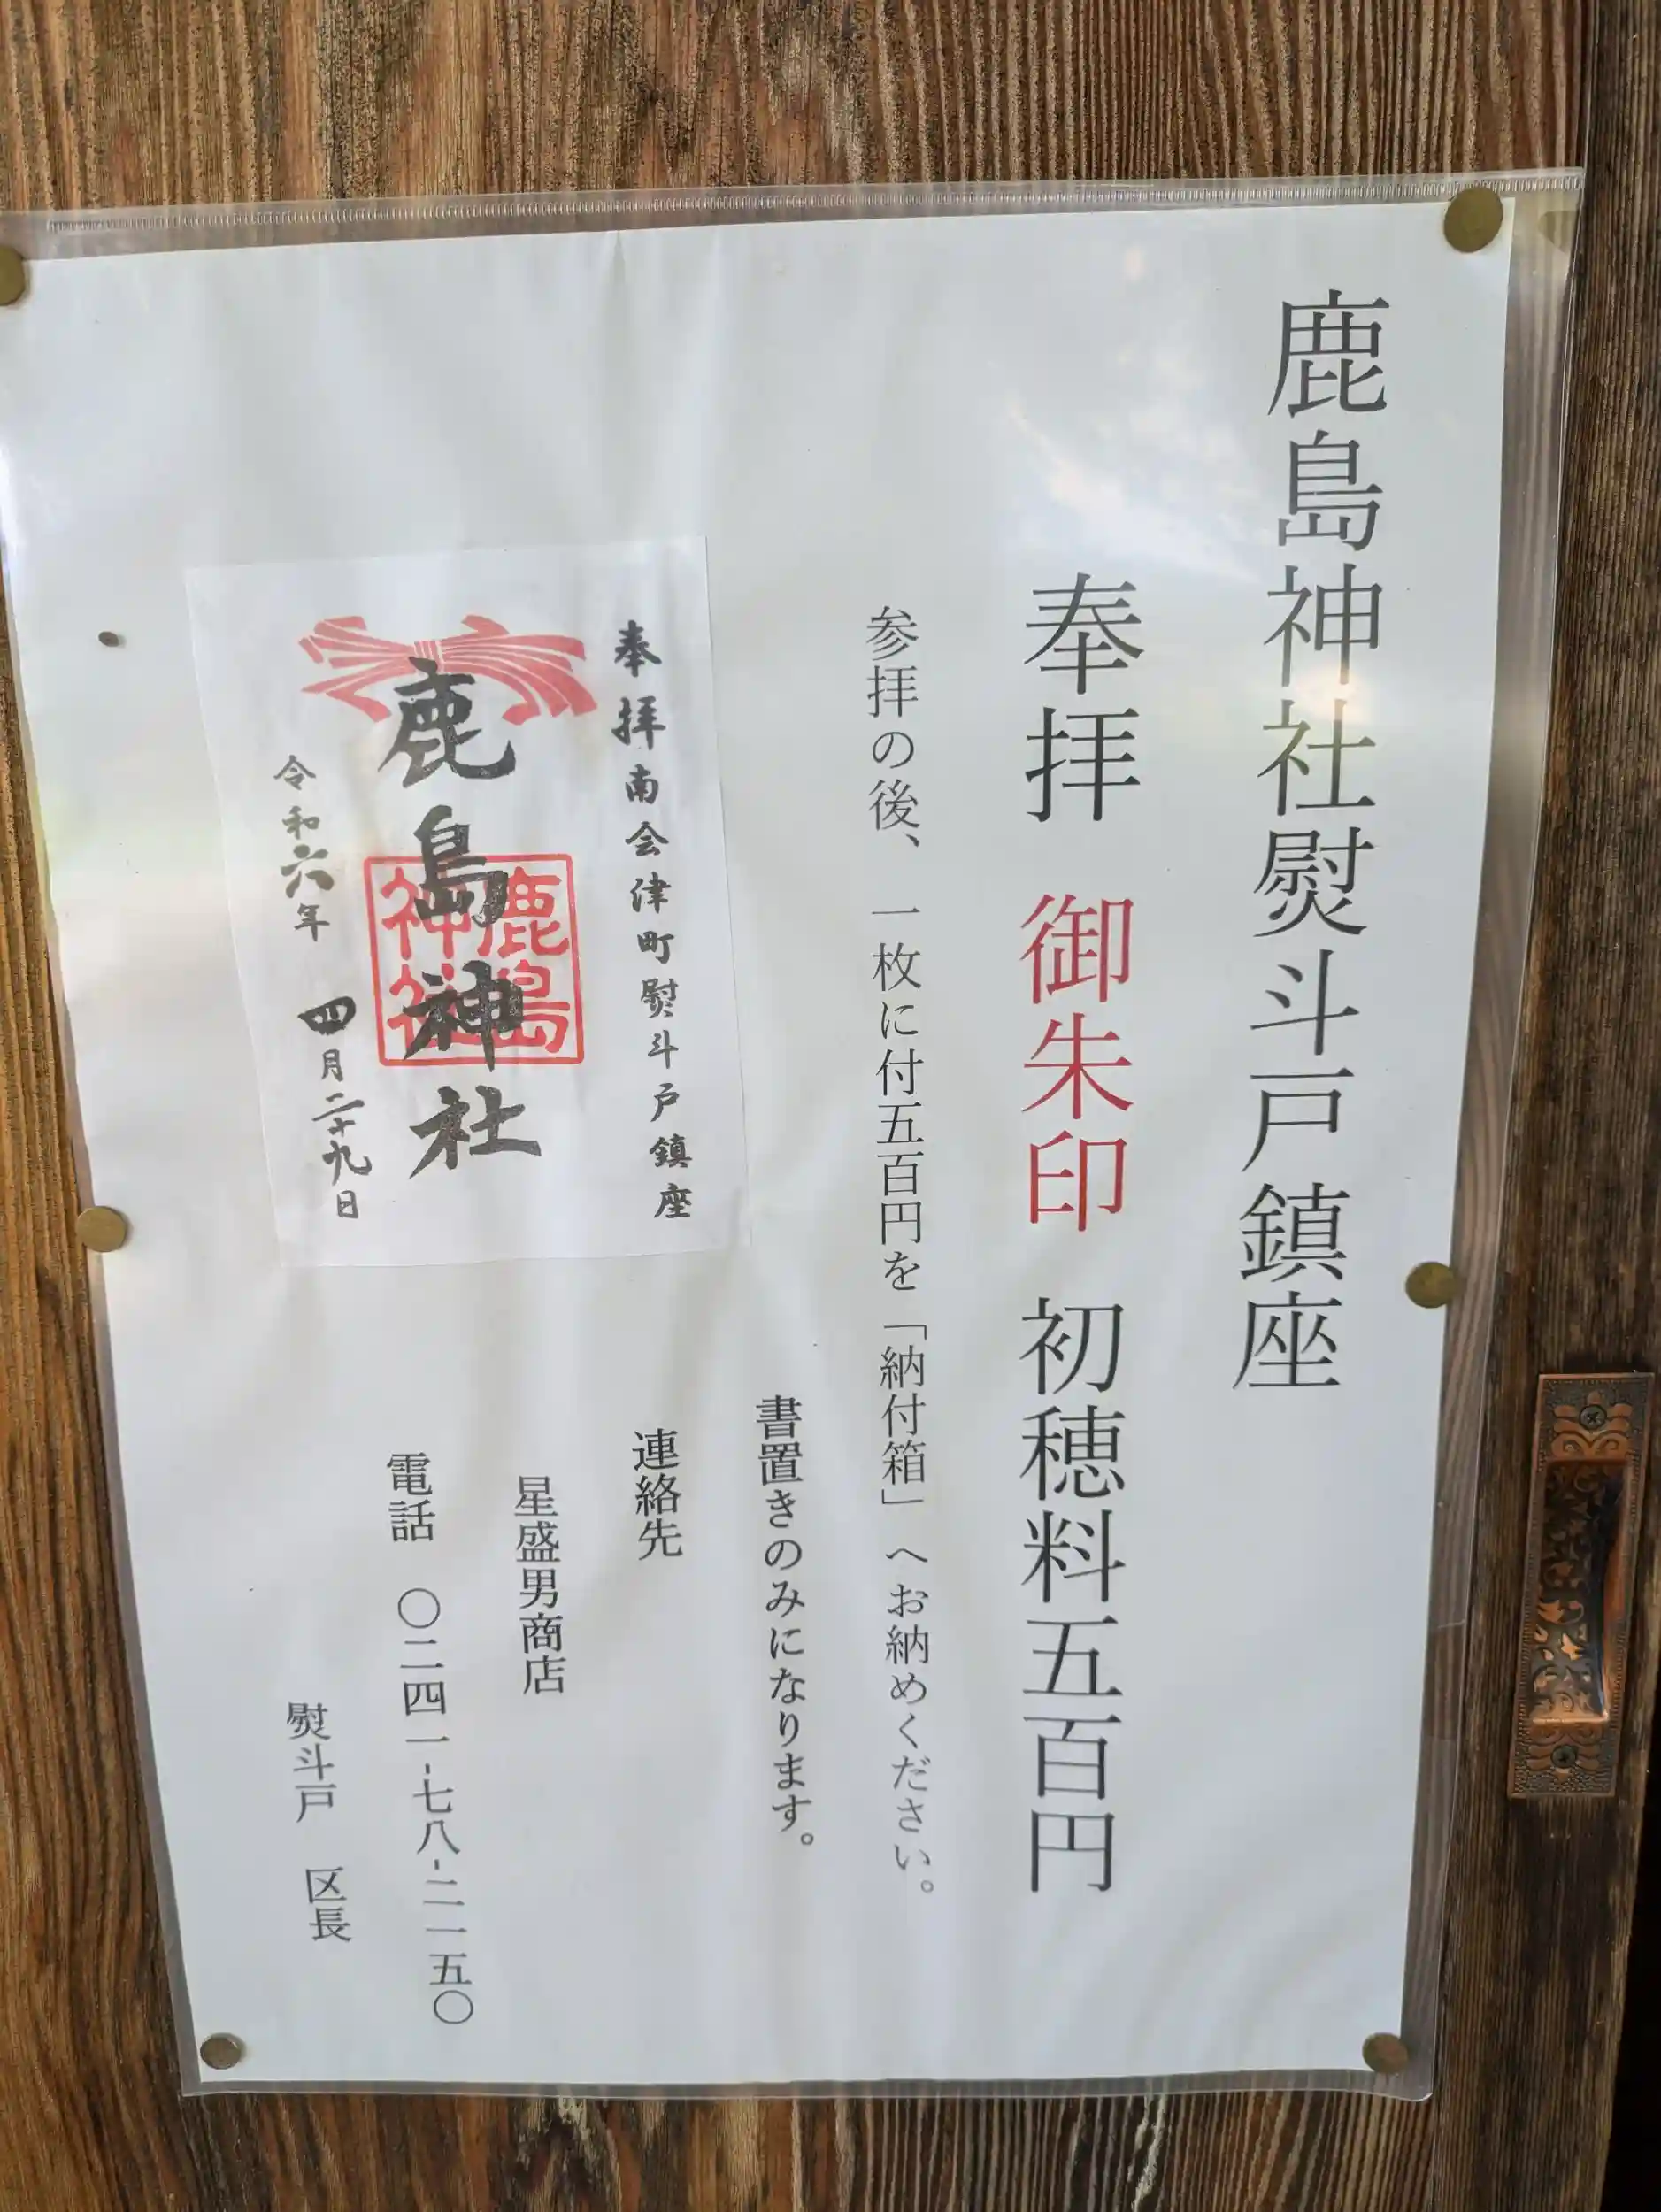 鹿島神社熨斗戸鎮座
奉拝 御朱印 初穂料五百円
参拝の後、一枚に付五百円を「納付箱」へお納めください。
書置きのみになります。
奉拝 南会津町熨斗戸鎮座
鹿島神社
鹿島
神
令和六年 四月二十九日
連絡先
星盛男商店
電話 〇二四一-七八-二一五〇
熨斗戸 区長